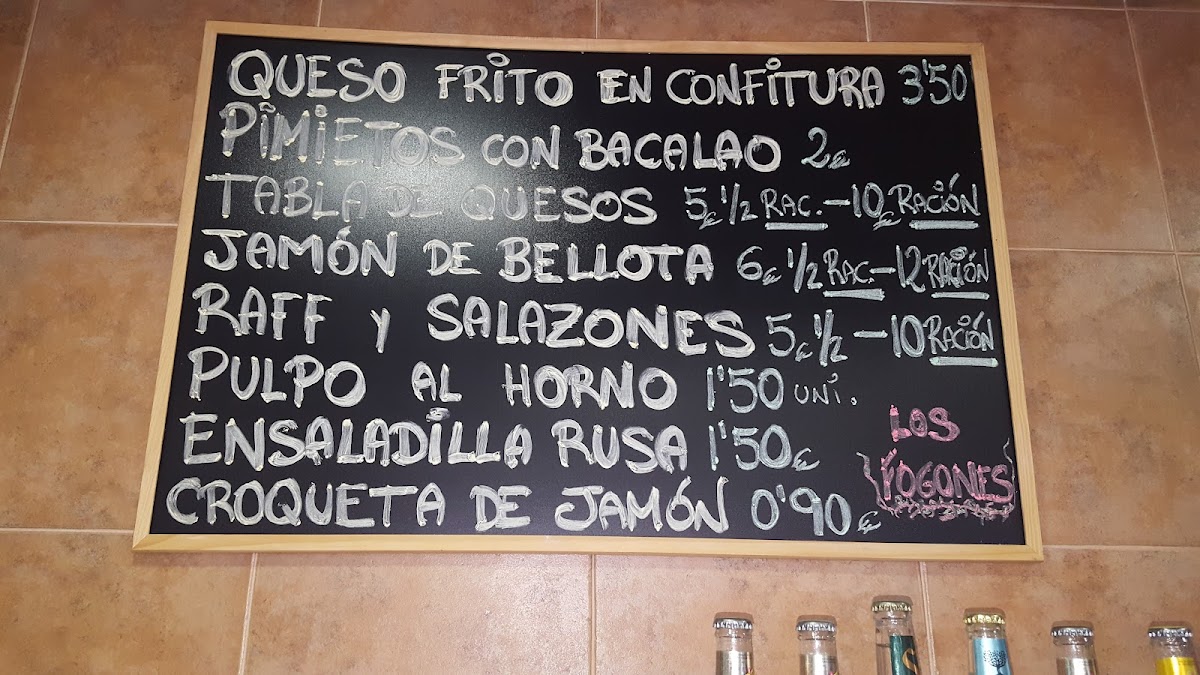 QUESO FRITO EN CONFITURA 3'50
PIMIETOS CON BACALAO 2€
TABLA DE QUESOS 5€ 1/2 RAC. - 10€ RACIÓN
JAMÓN DE BELLOTA 6€ 1/2 RAC - 12 RACIÓN
RAFF Y SALAZONES 5€ 1/2 - 10 RACIÓN
PULPO AL HORNO 1'50 UNI.
ENSALADILLA RUSA 1'50€
CROQUETA DE JAMÓN 0'90€
LOS
FOGONES